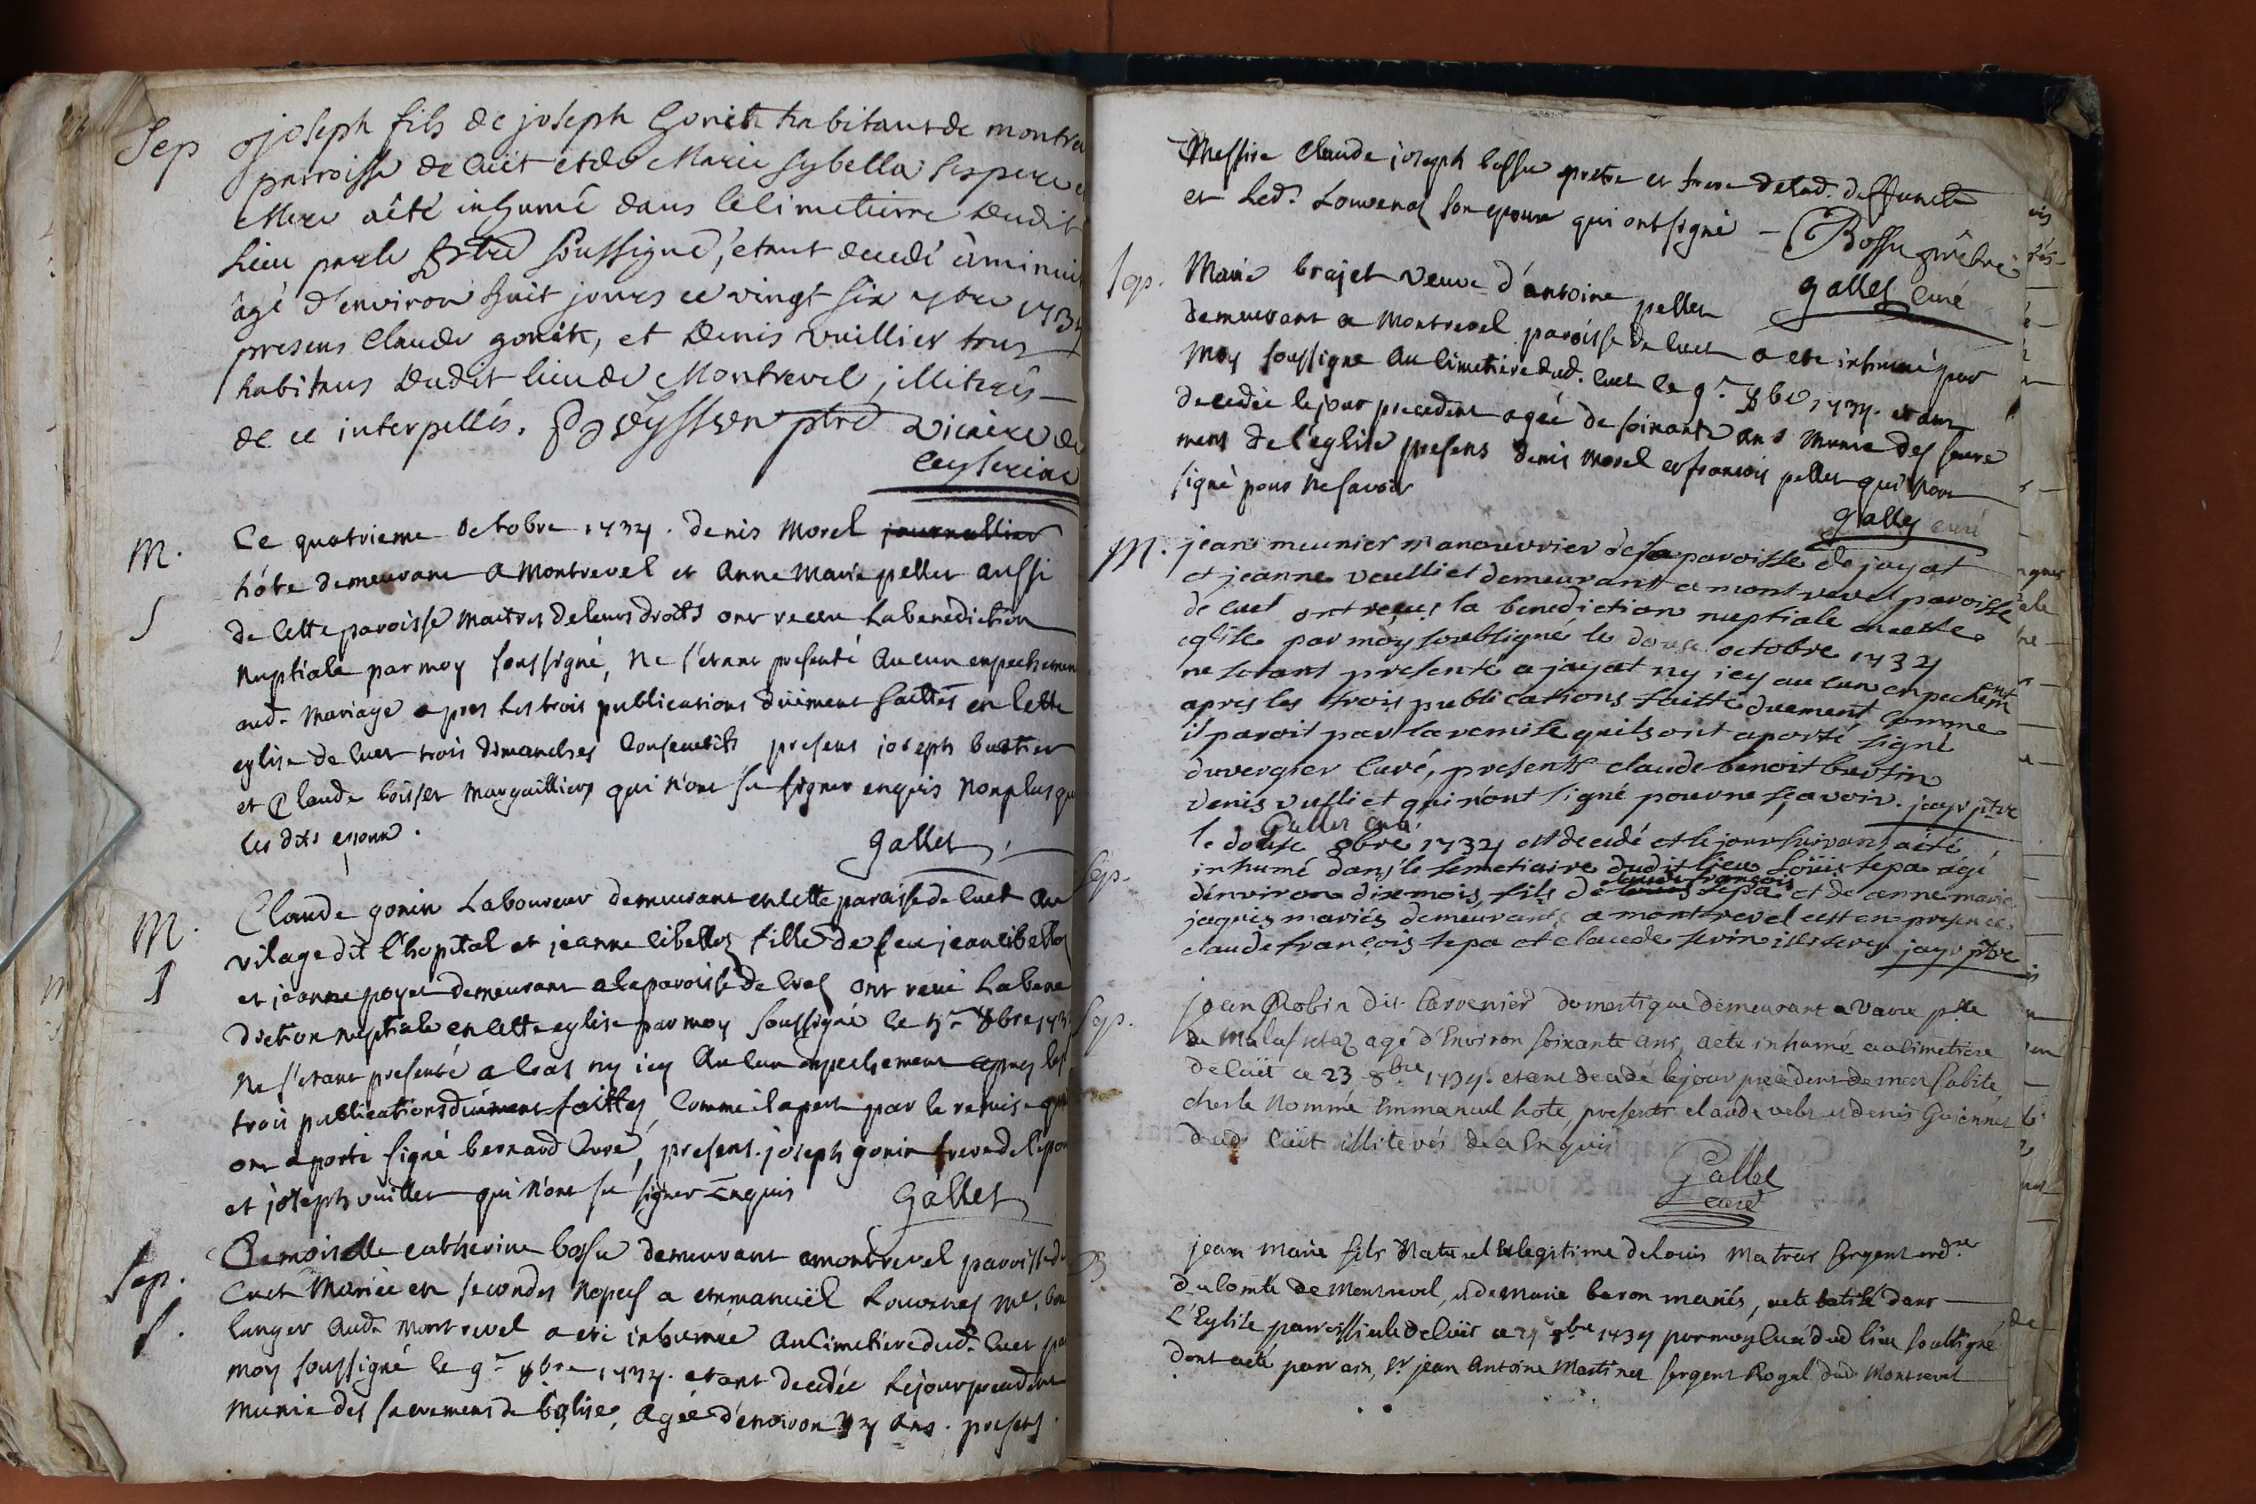 Sep joseph fils de joseph Gonet habitant de montre
parroisse de cuët et de Marie sybella ses pere
Mere a été inhumé dans le cimetierre dudit
lieu par le ptre soussigné, étant decedé à minuit
âgé d'environ huit jours ce vingt six 7bre 1734
presens Claude gonet, et Denis vuillier tous
habitans dudit lieu de Montrevel, illiterés
de ce interpellés. ptre vicaire de

M. Ce quatrieme octobre 1734. denis Morel journallier
hôte demeurant a Montrevel et Anne Marie pellet aussi
S de cette paroisse maitres de leurs droits ont receu la benediction
Nuptiale par moy soussigné, ne s'etant presenté aucun enpechement
aud. Mariage apres les trois publications düement faittes en cette
eglise de cuet trois dimanches consecutifs presens joseph
et Claude boisset marguilliers qui n'ont su signer enquis non plus que
les dits epoux.
gallet
M. Claude gonin Laboureur demeurant en cette paroisse de cuet au
vilage dit l'hopital et jeanne libelloz fille de feu jean libelloz
S et jeanne poyet demeurant a la paroisse de cras ont receu la bene
diction nuptiale en cette eglise par moy soussigné le 5e 8bre 173
Ne s'etant presenté a cras ny icy aucun enpechement apres les
trois publications düement faittes, comme il apert par la remise
ont aporté signé bernard Curé, presens joseph gonin frere de l'epou
et joseph vuillet qui n'ont su signer Enquis gallet
Sep. Demoiselle catherine bossu demeurant a montrevel paroisse de
Cuet Mariée en secondes Nopces a emmanuël Louvenas me bou
S. langer aud. Montrevel a eté inhumée au cimetiere dud. cuet par
moy soussigné le 9e 8bre 1734. etant decedée le jour precedent
munie des sacremens de l'eglise, agée d'environ 34 ans. presens
Messire Claude joseph bossu pretre et frere de lad. deffuncte
et led. Louvenas son epoux qui ont signé — Bossu prêtre
gallet curé
Sep. Marie brajet veuve d'antoine pellet
demeurant a Montrevel paroisse de cuet a ete inhumé par
Moy soussigné au cimetiere dud. cuet le 9e 8bre 1734. etant
decedée le jour precedent agée de soixante ans munie des sacre
ment de l'eglise presens denis morel et francois pellet qui n'ont
signé pour ne savoir
gallet curé
M. jean meunier manouvrier de la paroisse de jayat
et jeanne vulliet demeurant a montrevel paroisse
de cuet ont reçus la benediction nuptiale en cette
eglise par moy soubsigné le douse octobre 1734
ne setant presenté a jayat ny icy aucun enpechemt
apres les trois publications faitte duement comme
il paroit par la remise quils ont aporté signé
duvergier Curé, presents claude benoit bertin
denis vulliet qui n'ont signé pour ne sçavoir. jayr ptre
Gallet curé
Sep. le douse 8bre 1734 est decedé et le jour suivant a été
inhumé dans le semetiaire dudit lieu loüis sepa agé
d'environ dix mois fils de claude françois sepa et de anne marie
jaques mariés demeurants a montrevel et en presence
claude françois sepa et claude jayr ptre
Sep. jean Robin dit domestique demeurant a Vavre psse
de Malafretaz agé d'Environ soixante ans, a eté inhumé au cimetiere
de cüet ce 23 8bre 1734. etant decedé le jour precedent de mort subite
ches le Nommé Emmanuel hote, presents claude et denis
dud cüet illiterés de ce Enquis
Gallet
curé
B jean marie fils Naturel et legitime de Louis matras sergent ordre
du comté de Montrevel, et de marie baron mariés, a eté batisé dans
L'Eglise parroissiale de cüet ce 8bre 1734 par moy curé dud lieu soussigné
dont a eté parrain, Sr jean Antoine Martinet sergent Royal dud Montrevel